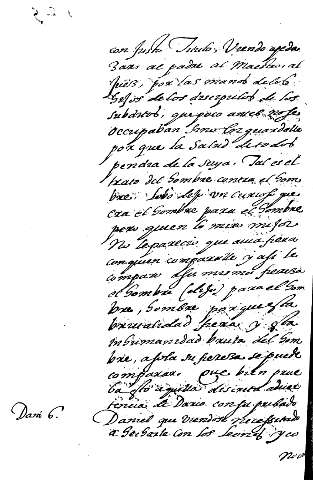 con Justo Titulo, Viendo y peda
zar, al padre al Maestro, al
Juez, por las manos de los
hijos de los discipulos de los
subditos, que poco antes no se
occupaban sino en guardalle
por que la Salud de todos
pendia de la suya. Tal es el
trato del hombre contra el hom
bre. lobo dijo un curioso que
era el hombre para el hombre
pero quien lo miro mejor
No le parecio que avia fiera
con quien comparalle y asi le
comparo a su mismo fiereza
el hombre (dijo) para el hom
bre, hombre porque esta
brutalidad fiera y esta
inhumanidad bruta del hom
bre, a sola su fiereza se puede
comparar. que bien prue
ba esto aquella discreta adver
tencia de Dario con su privado
Daniel que viendose necessitado
a hecharle con los leones, y co
Dani 6.